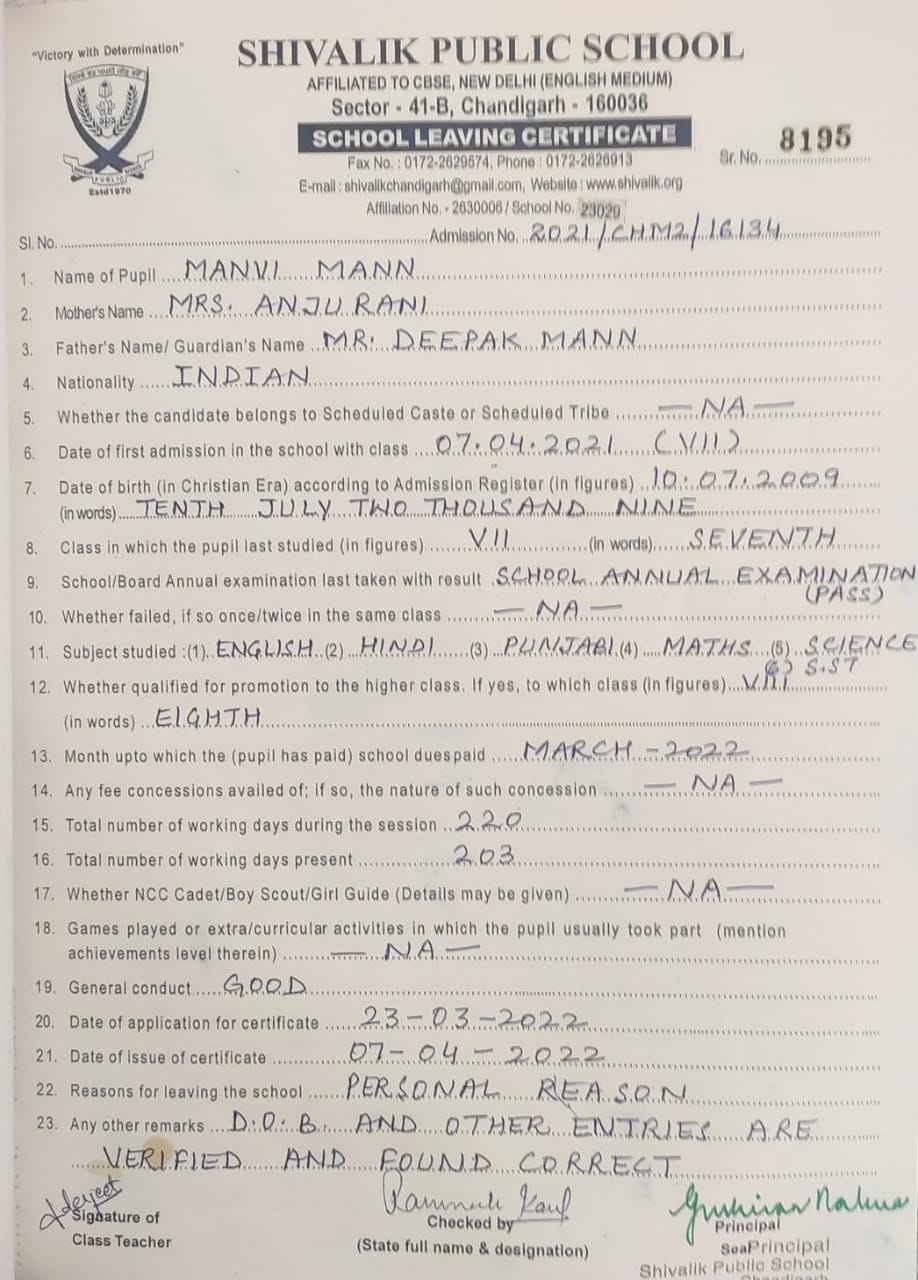 "Victory with Determination"
SHIVALIK PUBLIC SCHOOL
AFFILIATED TO CBSE, NEW DELHI (ENGLISH MEDIUM)
Sector - 41-B, Chandigarh - 160036
SCHOOL LEAVING CERTIFICATE
Sr. No. 8195
Fax No. : 0172-2629574, Phone : 0172-2626913
E-mail : shivalikchandigarh@gmail.com, Website : www.shivalik.org
Estd1970
Affiliation No. - 2630006 / School No. 23029
Sl. No. Admission No. 2021/CHM2/16134
1. Name of Pupil MANVI MANN
2. Mother's Name MRS. ANJU RANI
3. Father's Name/ Guardian's Name MR. DEEPAK MANN
4. Nationality INDIAN
5. Whether the candidate belongs to Scheduled Caste or Scheduled Tribe — NA —
6. Date of first admission in the school with class 07.04.2021 (VII)
7. Date of birth (in Christian Era) according to Admission Register (in figures) 10.07.2009
(in words) TENTH JULY TWO THOUSAND NINE
8. Class in which the pupil last studied (in figures) VII (in words) SEVENTH
9. School/Board Annual examination last taken with result SCHOOL ANNUAL EXAMINATION
(PASS)
10. Whether failed, if so once/twice in the same class — NA —
11. Subject studied :(1) ENGLISH (2) HINDI (3) PUNJABI (4) MATHS (5) SCIENCE
(6) S.ST
12. Whether qualified for promotion to the higher class. If yes, to which class (in figures) VIII
(in words) EIGHTH
13. Month upto which the (pupil has paid) school duespaid MARCH - 2022
14. Any fee concessions availed of; if so, the nature of such concession — NA —
15. Total number of working days during the session 220
16. Total number of working days present 203
17. Whether NCC Cadet/Boy Scout/Girl Guide (Details may be given) — NA —
18. Games played or extra/curricular activities in which the pupil usually took part (mention
achievements level therein) — NA —
19. General conduct GOOD
20. Date of application for certificate 23-03-2022
21. Date of issue of certificate 07-04-2022
22. Reasons for leaving the school PERSONAL REASON
23. Any other remarks D.O.B AND OTHER ENTRIES ARE
VERIFIED AND FOUND CORRECT
Signature of
Class Teacher
Checked by
(State full name & designation)
Principal
Seal Principal
Shivalik Public School
Chandigarh